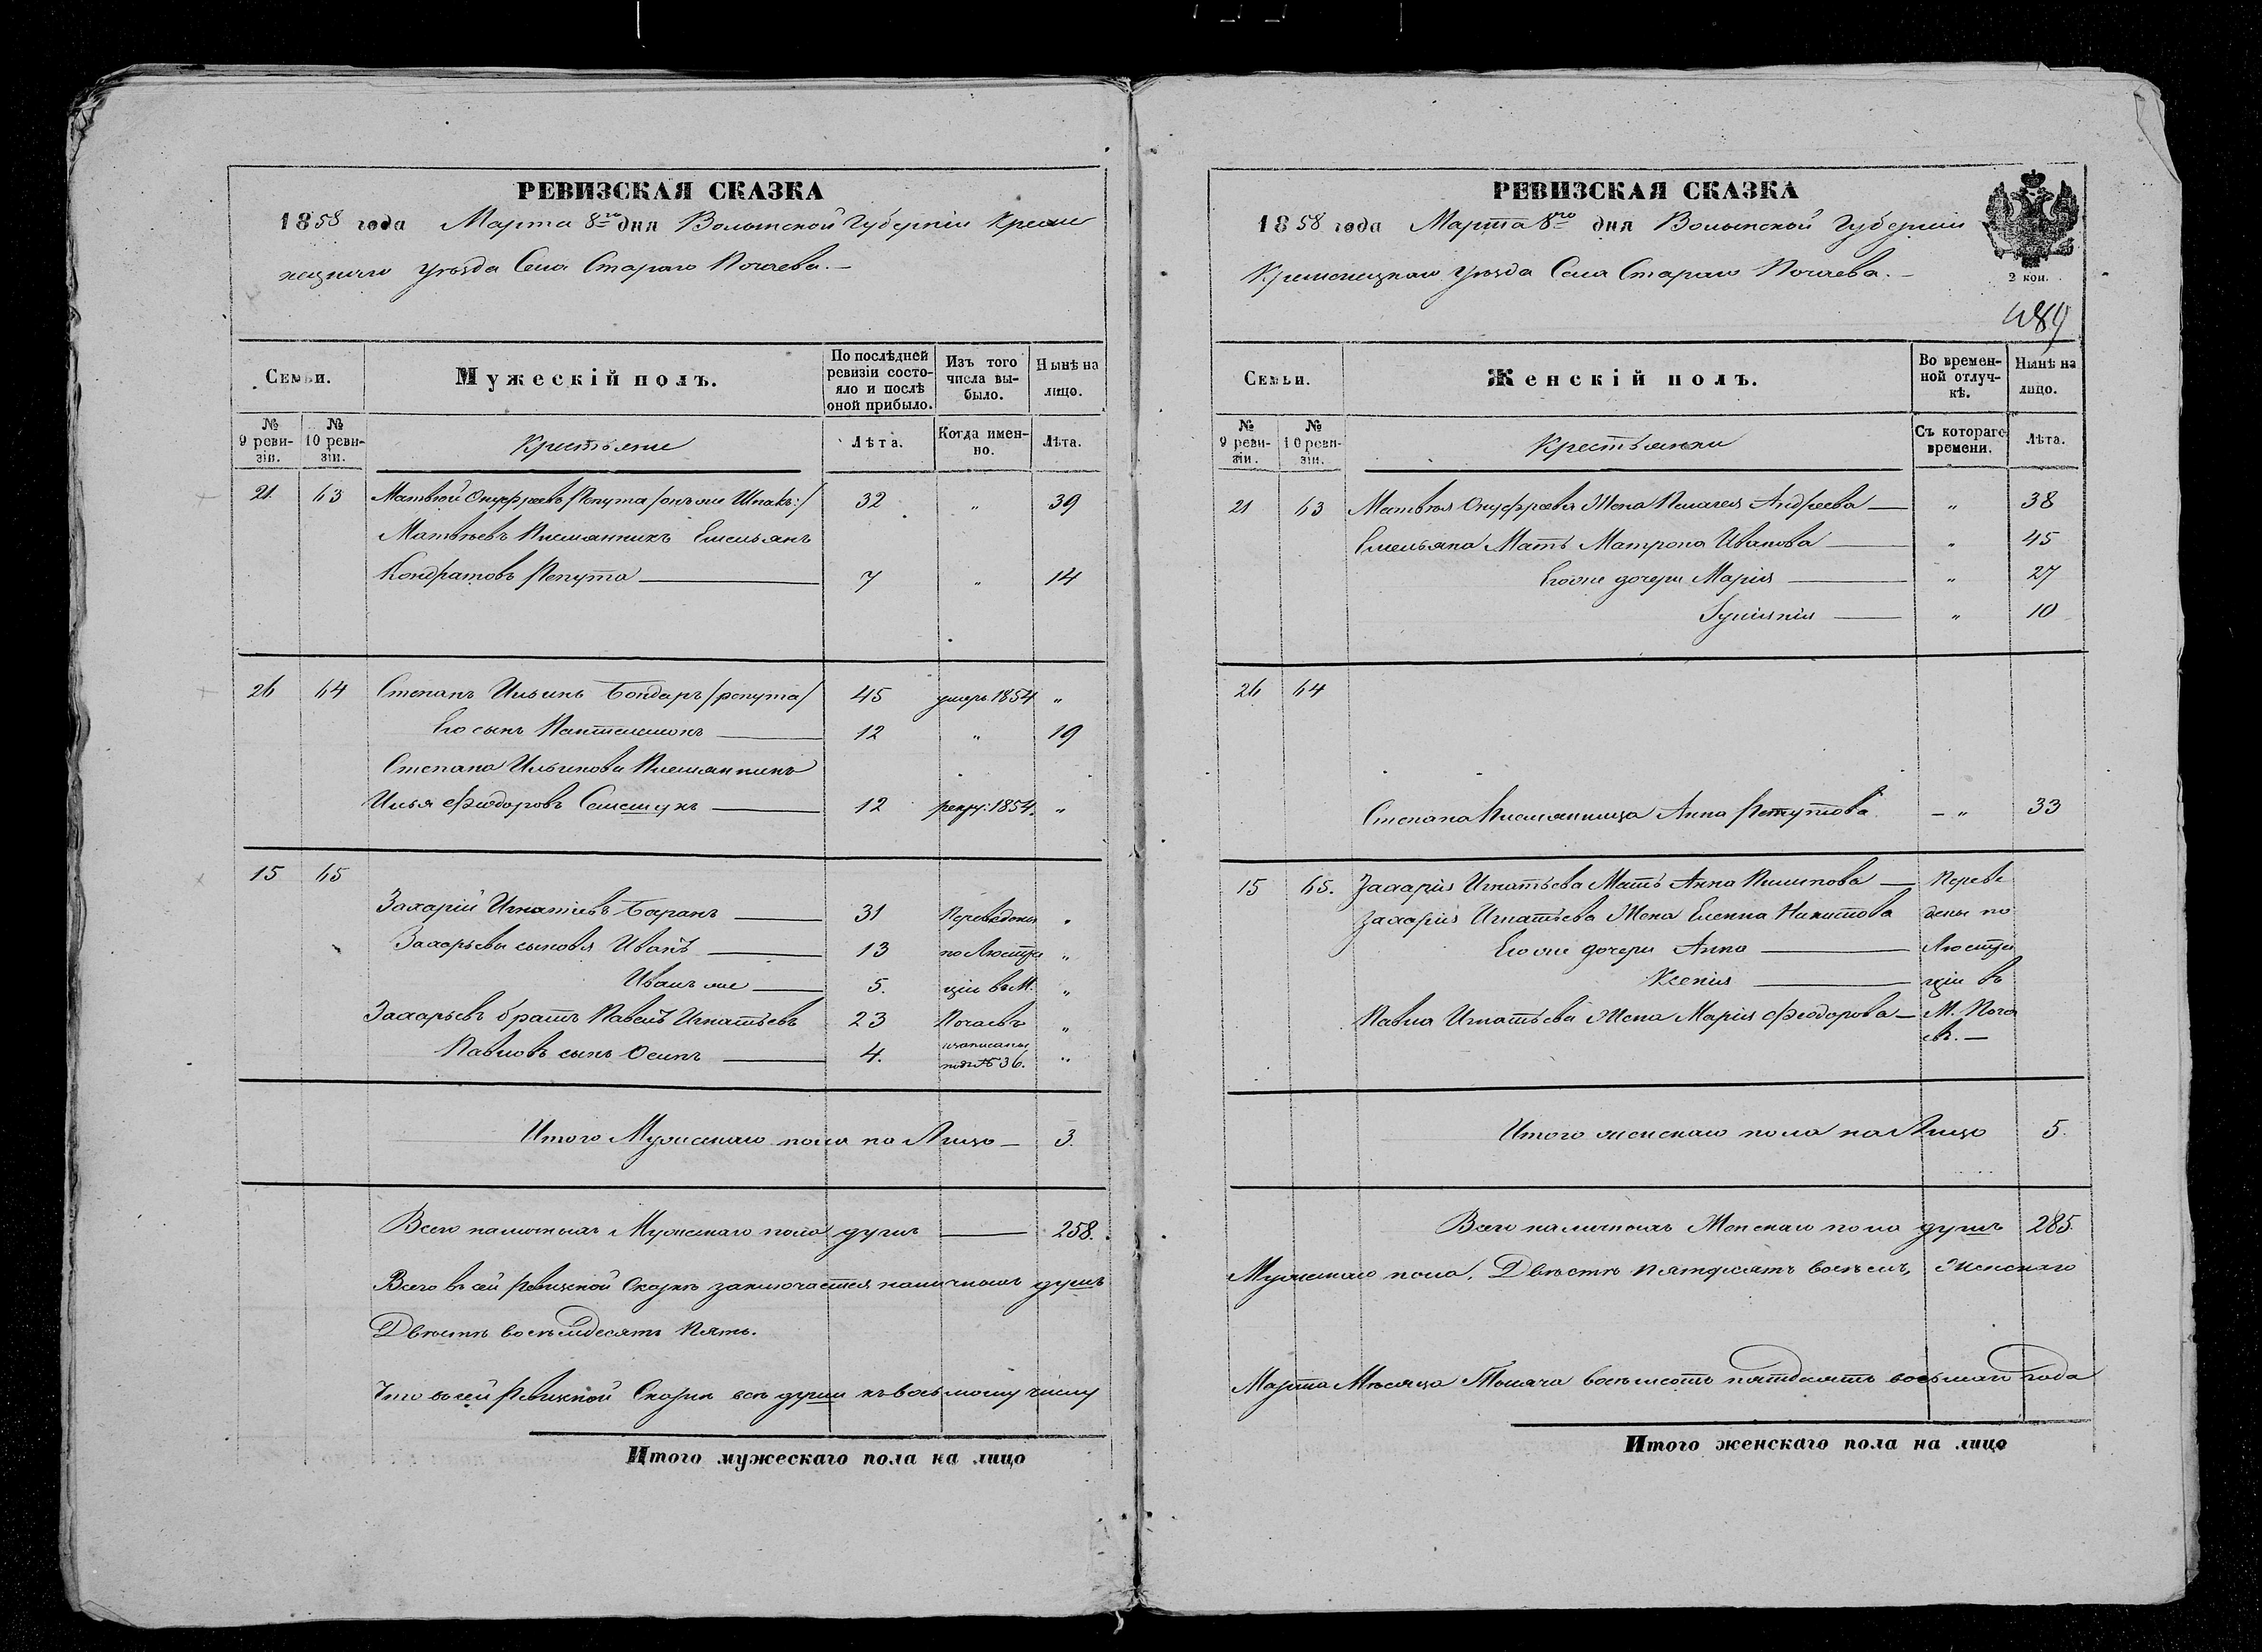 РЕВИЗСКАЯ СКАЗКА
1858 года Марта 8го дня Волынской Губерніи Креме
нецкаго уѣзда Села Стараго Почаева. —
Семьи.
Мужескій полъ.
По послѣдней ревизіи состояло и послѣ оной прибыло.
Изъ того числа выбыло.
Нынѣ на лицо.
№ 9 ревизіи.
№ 10 ревизіи.
Крестьяне
Лѣта.
Когда именно.
Лѣта.
21 63 Матвѣй Онуфріевъ Репута /онъ же Шпакъ:/ 32 „ 39
Матвѣевъ Племянникъ Емельянъ
Кондратовъ Репута — 7 „ 14
26 64 Степанъ Ильинъ Бондарь /репута/ 45 умеръ 1854 „
Его сынъ Пантелимонъ — 12 „ 19
Степана Ильинова Племянникъ
Илья Фѣодоровъ Семещукъ — 12 рекру: 1854. „
15 65
Захарій Игнатіевъ Баранъ — 31 Переведены „
Захарьевы сыновья Иванъ — 13 по Люстра „
Иванъ же — 5. ціи въ М. „
Захарьевъ братъ Павелъ Игнатьевъ 23 Почаевъ „
Павловъ сынъ Осипъ — 4. изаписаны подъ № 36. „
Итого Мужескаго пола на Лицо — 3.
Всего наличныхъ Мужескаго пола душъ — 258.
Всего въ сей Ревизской Сказкѣ заключается наличныхъ душъ
Двѣсти восемьдесятъ Пять.
Что въ сей Ревизской Сказкѣ всѣ души къ восьмому числу
Итого мужескаго пола на лицо
РЕВИЗСКАЯ СКАЗКА
1858 года Марта 8го дня Волынской Губерніи
Кременецкаго уѣзда Села Стараго Почаева. —
2 коп.
489
Семьи.
Женскій полъ.
Во временной отлучкѣ.
Нынѣ на лицо.
№ 9 ревизіи.
№ 10 ревизіи.
Крестьянки
Съ котораго времени.
Лѣта.
21 63 Матвѣя Онуфріева Жена Пелагея Андреева — „ 38
Емельяна Мать Матрона Иванова — „ 45
Его же дочери Марія — „ 27
— „ 10
26 64
Степана Племянница Анна Репутова — „ 33
15 65. Захарія Игнатьева Мать Анна — Переве
Захарія Игнатьева Жена Елена Никитова дены по
Его же дочери Анна — Люстра
Ксенія — ціи въ
Павла Игнатьева Жена Марія Фѣодорова — М. Поча
евъ. —
Итого женскаго пола на Лицо 5.
Всего наличныхъ Женскаго пола душъ 285
Мужескаго пола, Двѣсти Пятдесятъ восемь, Женскаго
Марта Мѣсяца Тысяча восемсотъ пятдесятъ восьмаго года
Итого женскаго пола на лицо